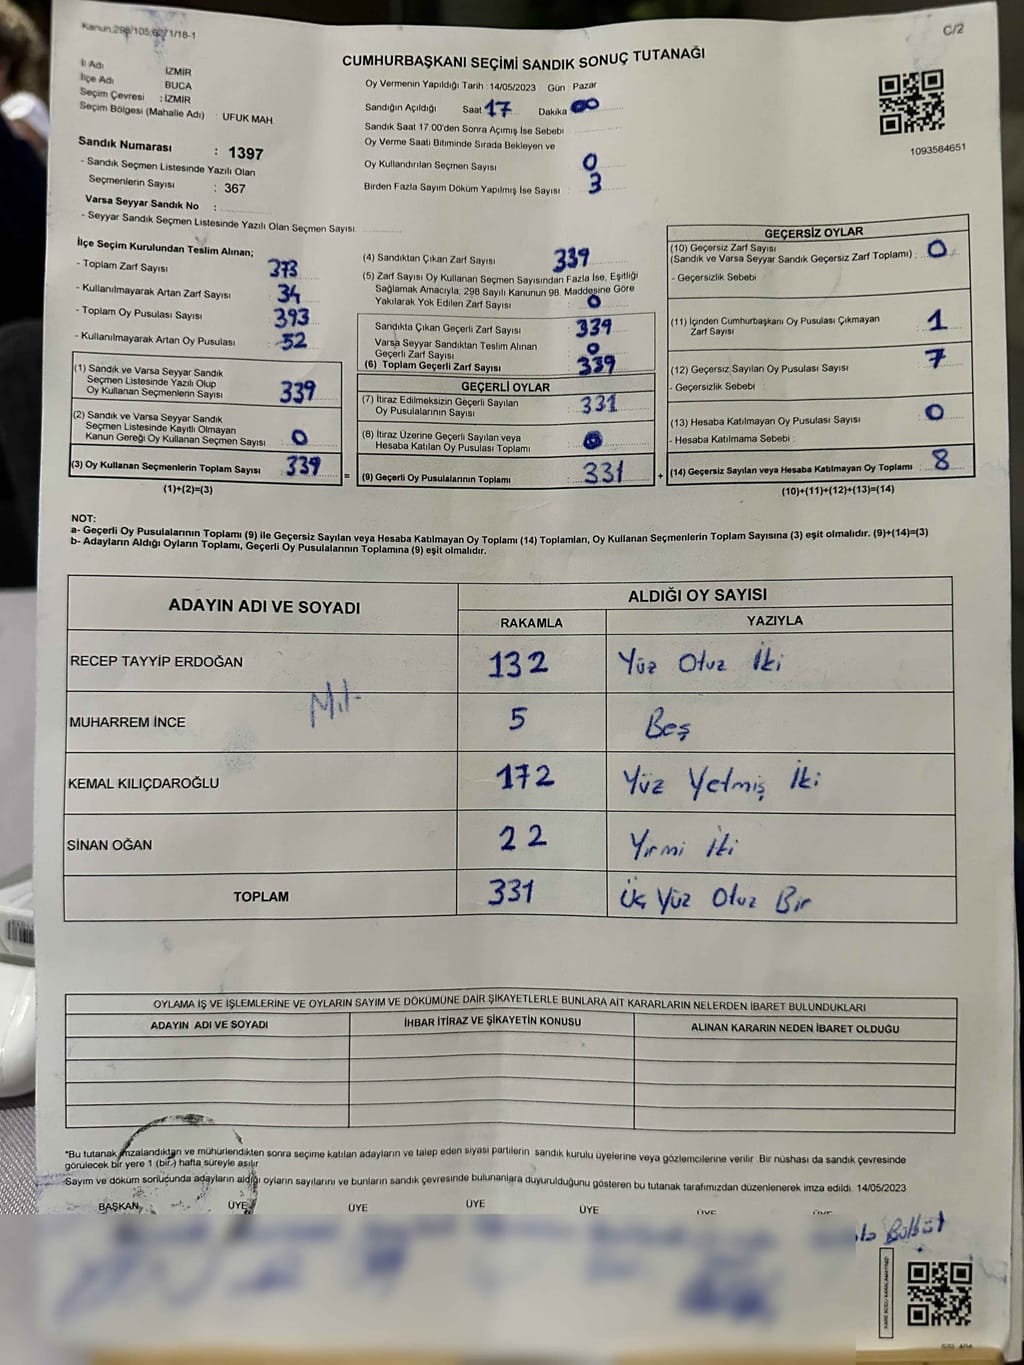 Kanun:298/105,6271/18-1
C/2
CUMHURBAŞKANI SEÇİMİ SANDIK SONUÇ TUTANAĞI
İl Adı İZMİR
İlçe Adı BUCA
Seçim Çevresi : İZMİR
Seçim Bölgesi (Mahalle Adı) : UFUK MAH.
Oy Vermenin Yapıldığı Tarih : 14/05/2023 Gün : Pazar
Sandığın Açıldığı Saat 17 Dakika 00
Sandık Saat 17:00'den Sonra Açımış İse Sebebi
Oy Verme Saati Bitiminde Sırada Bekleyen ve
Oy Kullandırılan Seçmen Sayısı 0
Birden Fazla Sayım Döküm Yapılmış İse Sayısı 3
1093584651
Sandık Numarası : 1397
- Sandık Seçmen Listesinde Yazılı Olan
Seçmenlerin Sayısı : 367
Varsa Seyyar Sandık No :
- Seyyar Sandık Seçmen Listesinde Yazılı Olan Seçmen Sayısı
İlçe Seçim Kurulundan Teslim Alınan;
- Toplam Zarf Sayısı 373
- Kullanılmayarak Artan Zarf Sayısı 34
- Toplam Oy Pusulası Sayısı 393
- Kullanılmayarak Artan Oy Pusulası 52
(1) Sandık ve Varsa Seyyar Sandık
Seçmen Listesinde Yazılı Olup
Oy Kullanan Seçmenlerin Sayısı 339
(2) Sandık ve Varsa Seyyar Sandık
Seçmen Listesinde Kayıtlı Olmayan
Kanun Gereği Oy Kullanan Seçmen Sayısı 0
(3) Oy Kullanan Seçmenlerin Toplam Sayısı 339
(1)+(2)=(3)
(4) Sandıktan Çıkan Zarf Sayısı 339
(5) Zarf Sayısı Oy Kullanan Seçmen Sayısından Fazla İse, Eşitliği
Sağlamak Amacıyla; 298 Sayılı Kanunun 98. Maddesine Göre
Yakılarak Yok Edilen Zarf Sayısı 0
Sandıkta Çıkan Geçerli Zarf Sayısı 339
Varsa Seyyar Sandıktan Teslim Alınan
Geçerli Zarf Sayısı 0
(6) Toplam Geçerli Zarf Sayısı 339
GEÇERLİ OYLAR
(7) İtiraz Edilmeksizin Geçerli Sayılan
Oy Pusulalarının Sayısı 331
(8) İtiraz Üzerine Geçerli Sayılan veya
Hesaba Katılan Oy Pusulası Toplamı 0
= (9) Geçerli Oy Pusulalarının Toplamı 331 +
GEÇERSİZ OYLAR
(10) Geçersiz Zarf Sayısı
(Sandık ve Varsa Seyyar Sandık Geçersiz Zarf Toplamı) : 0
- Geçersizlik Sebebi
(11) İçinden Cumhurbaşkanı Oy Pusulası Çıkmayan
Zarf Sayısı 1
(12) Geçersiz Sayılan Oy Pusulası Sayısı 7
- Geçersizlik Sebebi :
(13) Hesaba Katılmayan Oy Pusulası Sayısı 0
- Hesaba Katılmama Sebebi :
(14) Geçersiz Sayılan veya Hesaba Katılmayan Oy Toplamı 8
(10)+(11)+(12)+(13)=(14)
NOT:
a- Geçerli Oy Pusulalarının Toplamı (9) ile Geçersiz Sayılan veya Hesaba Katılmayan Oy Toplamı (14) Toplamları, Oy Kullanan Seçmenlerin Toplam Sayısına (3) eşit olmalıdır. (9)+(14)=(3)
b- Adayların Aldığı Oyların Toplamı, Geçerli Oy Pusulalarının Toplamına (9) eşit olmalıdır.
ADAYIN ADI VE SOYADI
ALDIĞI OY SAYISI
RAKAMLA YAZIYLA
RECEP TAYYİP ERDOĞAN 132 Yüz Otuz İki
MUHARREM İNCE 5 Beş
KEMAL KILIÇDAROĞLU 172 Yüz Yetmiş İki
SİNAN OĞAN 22 Yirmi İki
TOPLAM 331 Üç Yüz Otuz Bir
OYLAMA İŞ VE İŞLEMLERİNE VE OYLARIN SAYIM VE DÖKÜMÜNE DAİR ŞİKAYETLERLE BUNLARA AİT KARARLARIN NELERDEN İBARET BULUNDUKLARI
ADAYIN ADI VE SOYADI İHBAR İTİRAZ VE ŞİKAYETİN KONUSU ALINAN KARARIN NEDEN İBARET OLDUĞU
*Bu tutanak imzalandıktan ve mühürlendikten sonra seçime katılan adayların ve talep eden siyasi partilerin sandık kurulu üyelerine veya gözlemcilerine verilir. Bir nüshası da sandık çevresinde
görülecek bir yere 1 (bir) hafta süreyle asılır.
Sayım ve döküm sonucunda adayların aldığı oyların sayılarını ve bunların sandık çevresinde bulunanlara duyurulduğunu gösteren bu tutanak tarafımızdan düzenlenerek imza edildi. 14/05/2023
BAŞKAN ÜYE ÜYE ÜYE ÜYE